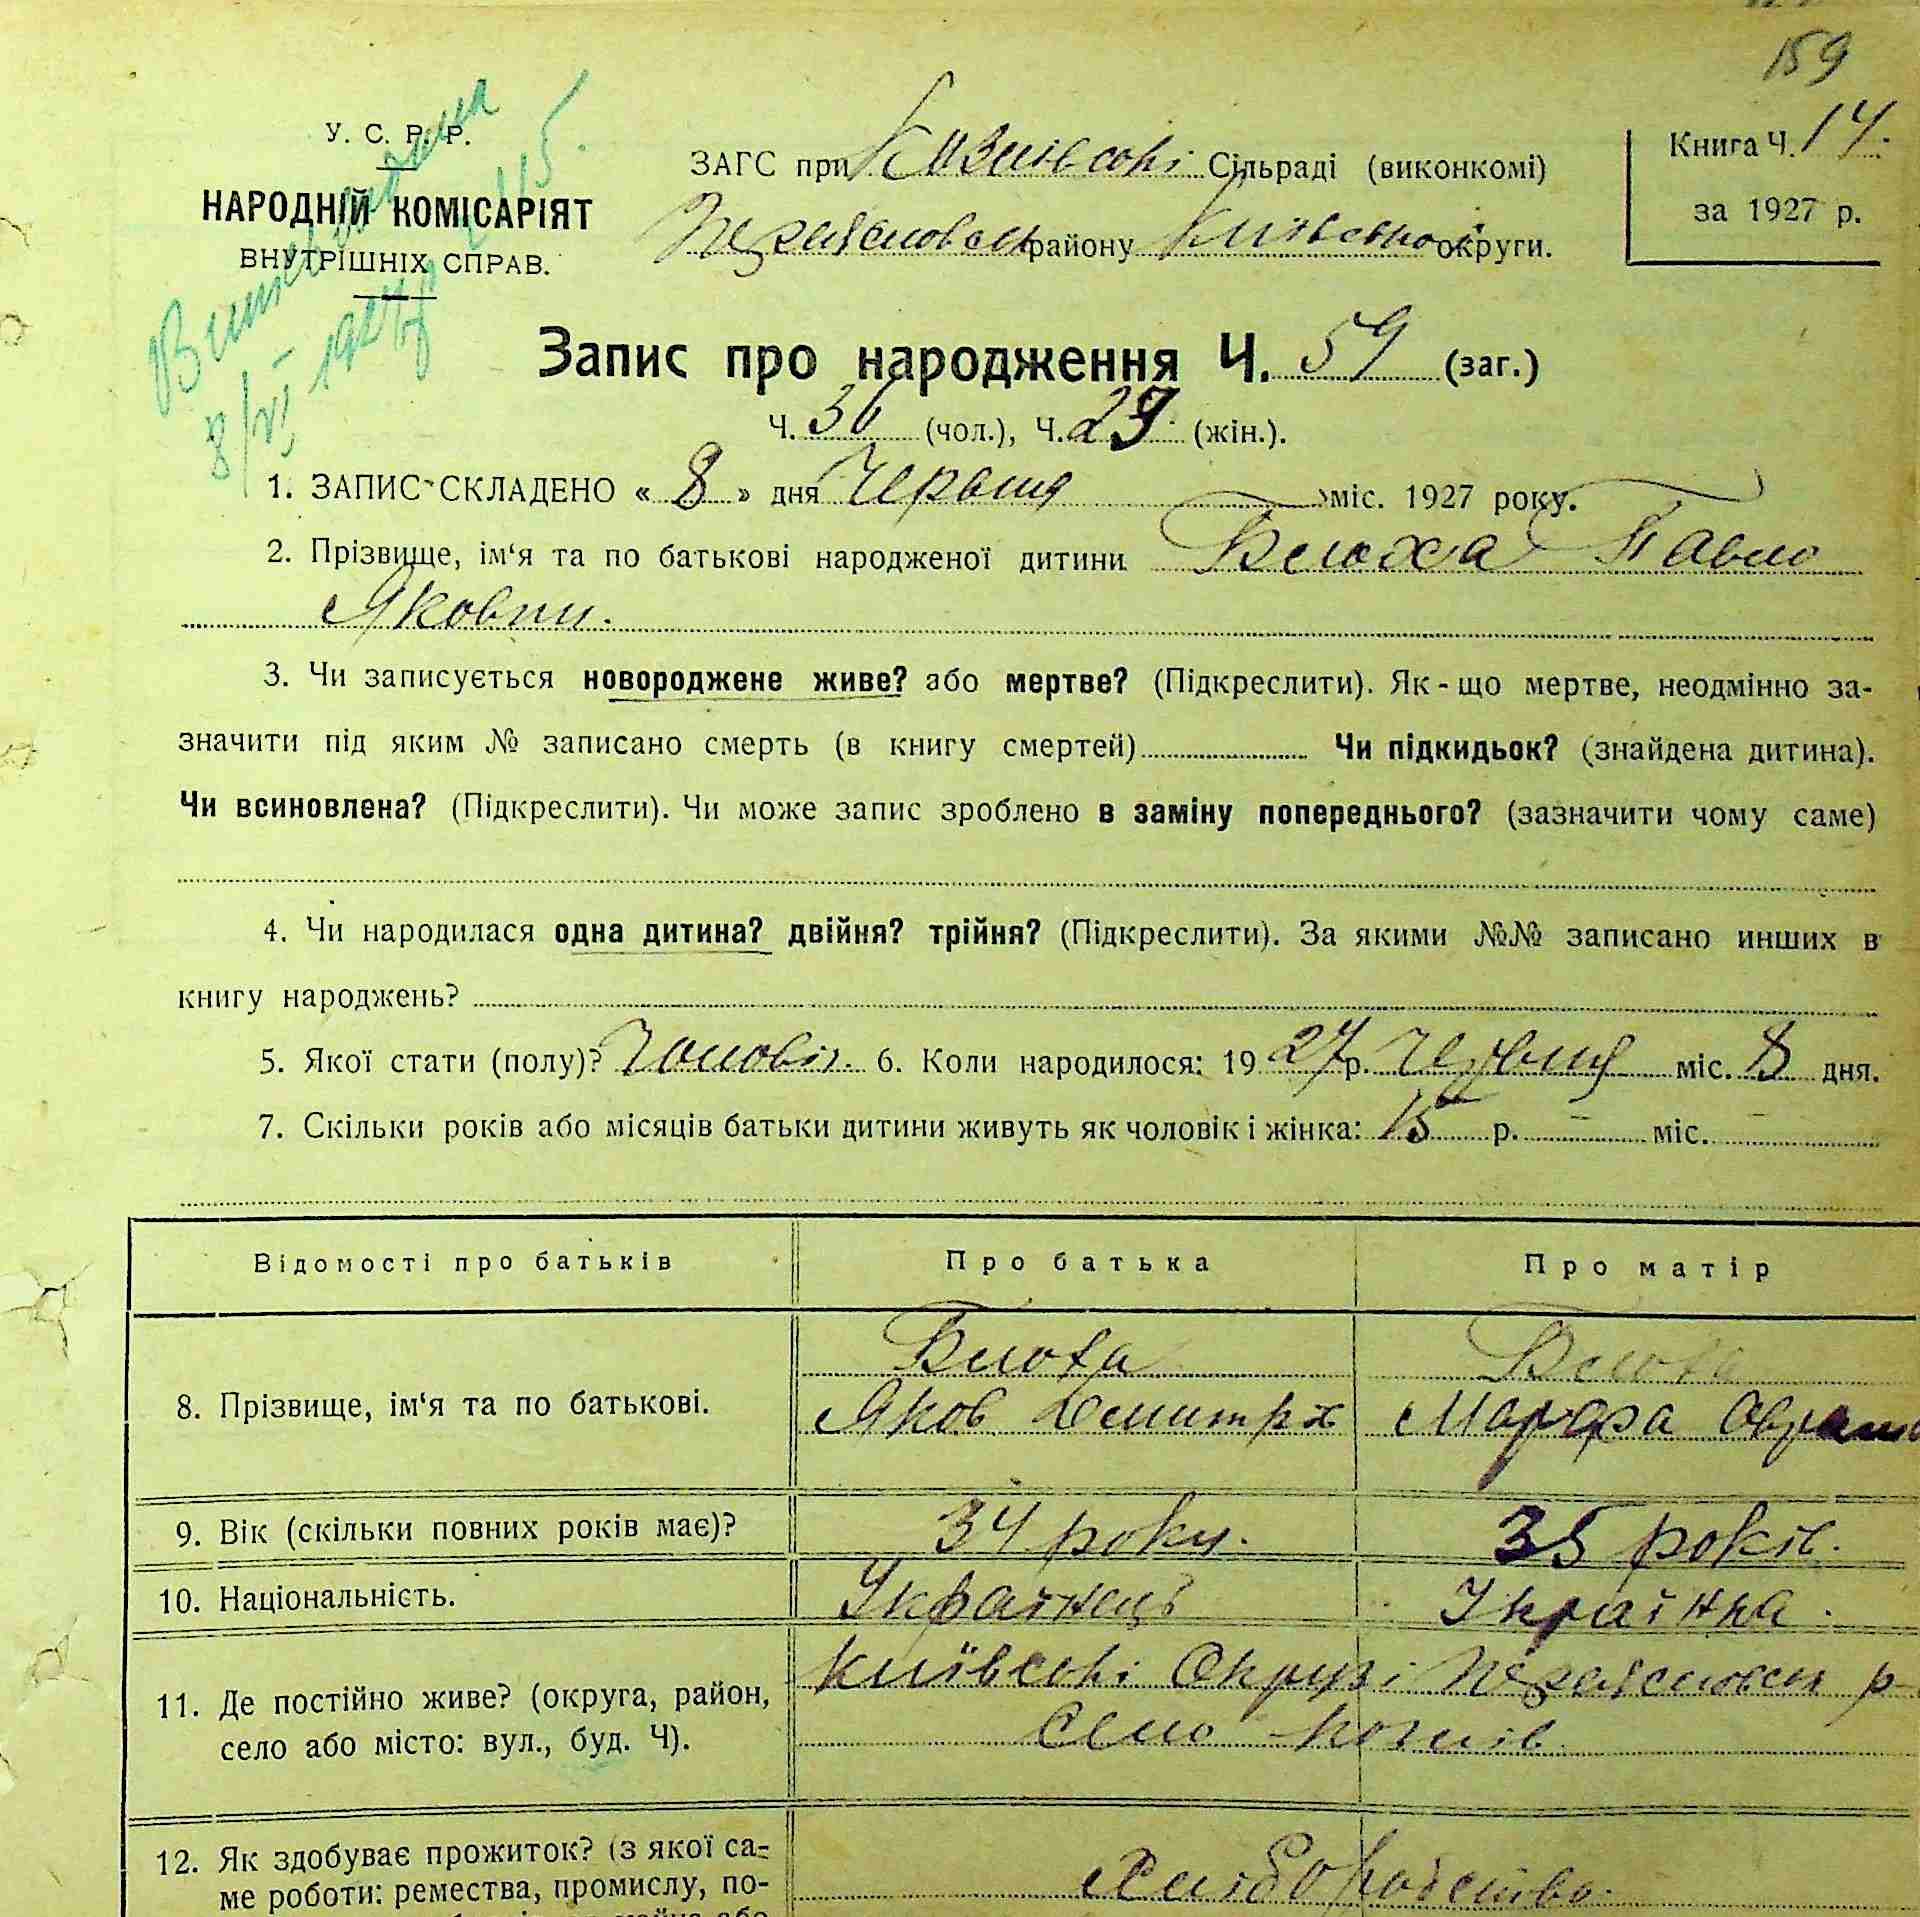 159
У. С. Р. Р.
НАРОДНІЙ КОМІСАРІЯТ
ВНУТРІШНІХ СПРАВ.
ЗАГС при Козинські Сільраді (виконкомі)
Переясловськ району Київської округи.
Книга Ч. 14.
за 1927 р.
8/VI 1927 р
Запис про народження Ч. 59 (заг.)
Ч. 36 (чол.), Ч. 23 (жін.).
1. ЗАПИС СКЛАДЕНО « 8 » дня Червня міс. 1927 року.
2. Прізвище, ім‘я та по батькові народженої дитини Блоха Павло
Якович.
3. Чи записується новороджене живе? або мертве? (Підкреслити). Як-що мертве, неодмінно за-
значити під яким № записано смерть (в книгу смертей) Чи підкидьок? (знайдена дитина).
Чи всиновлена? (Підкреслити). Чи може запис зроблено в заміну попереднього? (зазначити чому саме)
4. Чи народилася одна дитина? двійня? трійня? (Підкреслити). За якими №№ записано инших в
книгу народжень?
5. Якої стати (полу)? Чоловіч. 6. Коли народилося: 1927 р. Червня міс. 8 дня.
7. Скільки років або місяців батьки дитини живуть як чоловік і жінка: 15 р. – міс.
Відомості про батьків Про батька Про матір
8. Прізвище, ім‘я та по батькові. Блоха Блоха
Яков Дмитрх Марфа Оврам
9. Вік (скільки повних років має)? 34 року. 35 років.
10. Національність. Українець Українка.
11. Де постійно живе? (округа, район, Київські Окрузі Переясловськ р
село або місто: вул., буд. Ч). Село
12. Як здобуває прожиток? (з якої са-
ме роботи: ремества, промислу, по- Хліборобство.